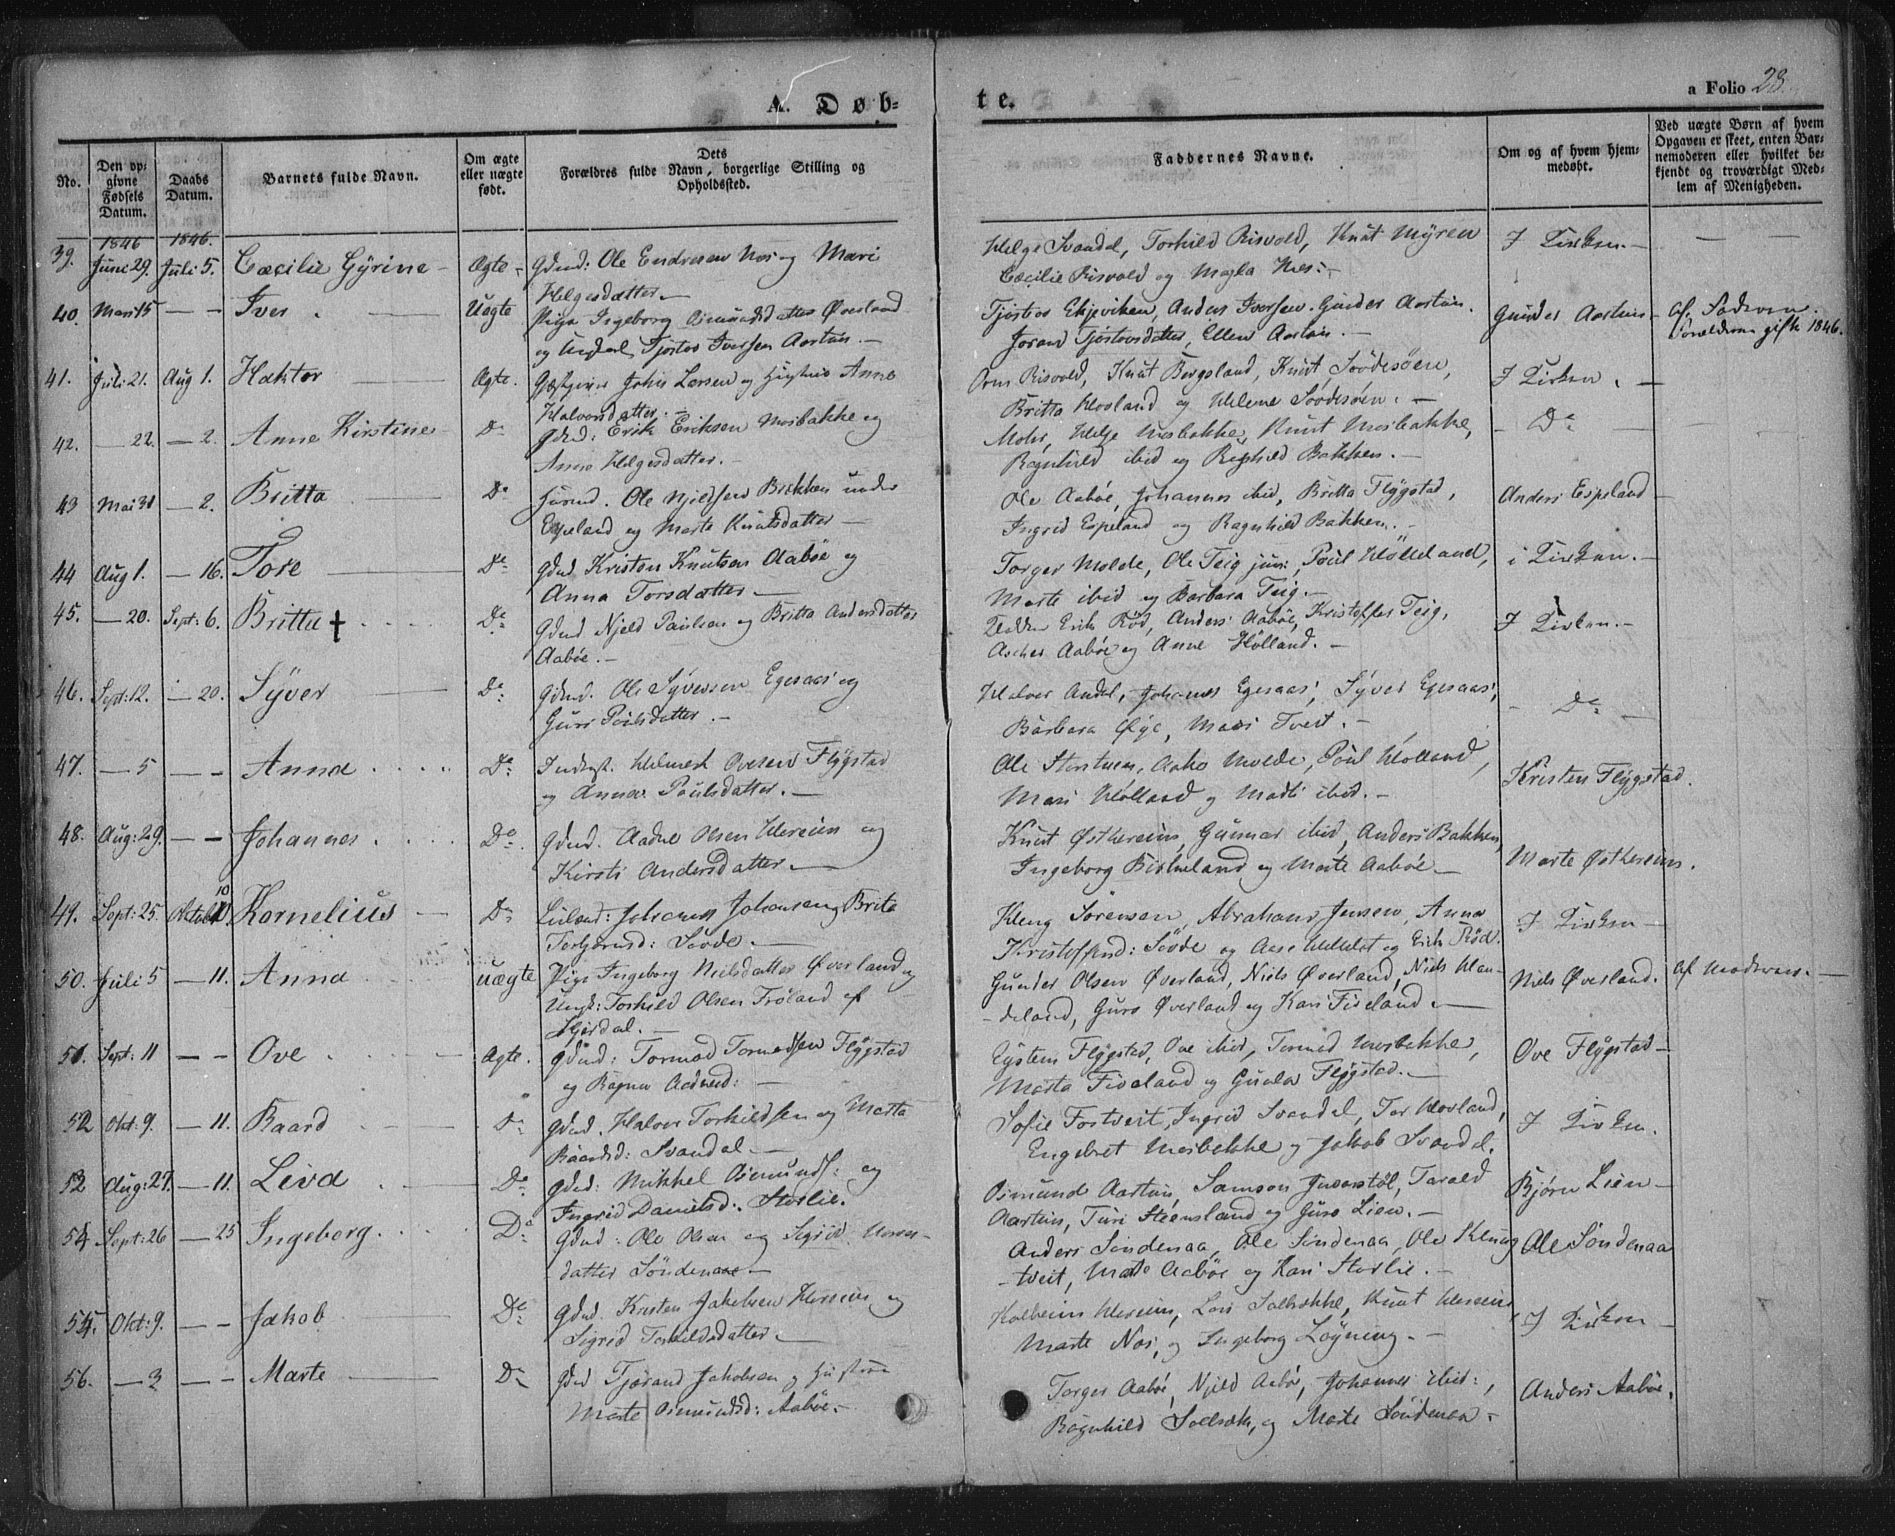 A. Døb-
te.
a Folio 28.
No.
Den op-
givne
Fødsels
Datum.
Daabs
Datum.
Barnets fulde Navn.
Om ægte
eller uægte
født.
Dets
Forældres fulde Navn, borgerlige Stilling og
Opholdssted.
Faddernes Navne.
Om og af hvem hjem-
medøbt.
Ved uægte Børn af hvem
Opgaven er skeet, enten Bar-
nemoderen eller hvilket be-
kjendt og troværdigt Med-
lem af Menigheden.
1846 1846.
39. Juni 29. Juli 5. Cæcilie Gyrine Ægte Gdmd: Ole Endresen Næs og Mari
Helgesdatter
Helge Svandal, Torkild Risvold, Knut Myren
Cæcilie Risvold og Næs.
I Kirken.
40. Mai 15 — — Iver Uægte Pige Ingeborg Osmundsdatter Øverland
og Tjøstov Iversen Aartun.
Tjøstov Anders Iversen, Gunder Aartun.
Joran Tjøstovsdatter, Ellen Aartun.
Gunder Aartun
af Faderen.
Forældrene gifte 1846.
41. Juli 21. Aug 1. Haktor Ægte. Gjæstgiver Johns Larsen og Hustrue Anne
Halvorsdatter.
Orm Risvold, Knut Bergsland, Knut
Britta Hovland og Helene
I Kirken.
42. — 22. — 2. Anne Kirstine Do Gdmd: Erik Eriksen Mosbakke og
Anne Helgesdatter.
Moder, Helje Mosbakke, Knut Mosbakke,
Ragnhild ibid og Bakken.
Do
43 Mai 31 — 2. Britta Do Huusmd. Ole Njeldsen Bakken under
Espeland og Marte Knutsdatter
Ole Aabøe, Johannes ibid, Britta Flÿgstad,
Ingrid Espeland og Ragnhild Bakken.
Anders Espeland
44 Aug 1. — 16. Tore Do Gdmd Kristen Knutsen Aabøe og
Anna Torsdatter
Torger Molde, Ole Teig jun:, Poul Hölleland,
Marte ibid og Barbara Teig.
i Kirken.
45. — 20. Sept: 6. Britta † Do Gdmd Njeld Paulsen og Britta Andersdatter
Aabøe.
Klokker Erik Röd, Anders Aabøe, Kristoffer Teig,
Ascher Aabøe og Anne Hölland.
I Kirken.
46. Sept: 12. — 20. Sÿver Do Gdmd. Ole Sÿversen Egesaas og
Guro Poulsdatter.
Halvor Andal, Johannes Egesaas, Sÿver Egesaas,
Barbara Øye, Mari Tveit.
Do
47. — 5 — — Anna Do Helmik Ovesen Flÿgstad
og Anna Poulsdatter.
Ole Aake Molde, Poul Hölland,
Mari Hölland og Marte ibid.
Kristen Flÿgstad.
48. Aug: 29. — — Johannes Do Gdmd. Aadne Olsen Hereim og
Kirsti Andersdatter
Knut Østhereim, Gunnar ibid, Anders Bakken,
Ingeborg Birkeland og Marte Aabøe
Marte Østhereim.
49. Sept: 25. Oktob: 10 Kornelius Do Johannes Johansen og Brita
Torbjørnsd: Søvde.
Kleng Sørensen, Abraham Jensen, Anna
Kristoffersd: Søvde og Aase og Erik Röd.
I Kirken
50. Juli 5 — 11. Anna uægte Pige Ingeborg Nielsdatter Øverland og
Ungk: Torkild Olsen Tröland af
Gunder Olsen Øverland, Niels Øverland, Niels Han-
deland, Guro Øverland og Kari Fiveland.
Niels Øverland.
af Moderen.
51. Sept: 11 — — Ove Ægte. Gdmd: Tormod Tormodsen Flÿgstad
og Ragna Aadnesd:
Eÿsten Flÿgstad, Ove ibid, Tormod Mosbakke,
Marta Fiveland og Flÿgstad.
Ove Flÿgstad
52 Okt: 9. — 11. Baard Do Gdmd. Halvor Torkildsen og Marta
Baardsd: Svandal.
Sofie Fostveit, Ingrid Svandal, Tor Hovland,
Engebret Mosbakke og Jakob Svandal.
I Kirken.
52 Aug: 27. — 11. Livd Do Gdmd: Mikkel Osmunds: og
Ingrid Danielsd: Storlie.
Osmund Aartun, Samson Tarald
Aartun, Turi Steensland og Guro Lien.
Bjørn Lien
54 Sept: 26 — 25 Ingeborg Do Gdmd: Ole Olsen og Sigrid
datter Söndenaae
Anders Söndenaa, Ole Söndenaa, Ole Kleng
tveit, Marte Aabøe og Kari Storlie.
Ole Søndenaa
55. Okt: 9. — — Jakob Do Gdmd. Kristen Jakobsen Hereim og
Sigrid Torkildsdatter
Hereim, Lars Solbække, Knut Hereim,
Marte Næs, og Ingeborg Löyning.
I Kirken
56. — 3 — — Marte Do Gdmd Tjærand Jakobsen og Hustrue
Marte Osmundsd: Aabøe.
Torger Aabøe, Njeld Aabø, Johannes ibid:,
Ragnhild og Marte Søndenaa
Anders Aabøe.